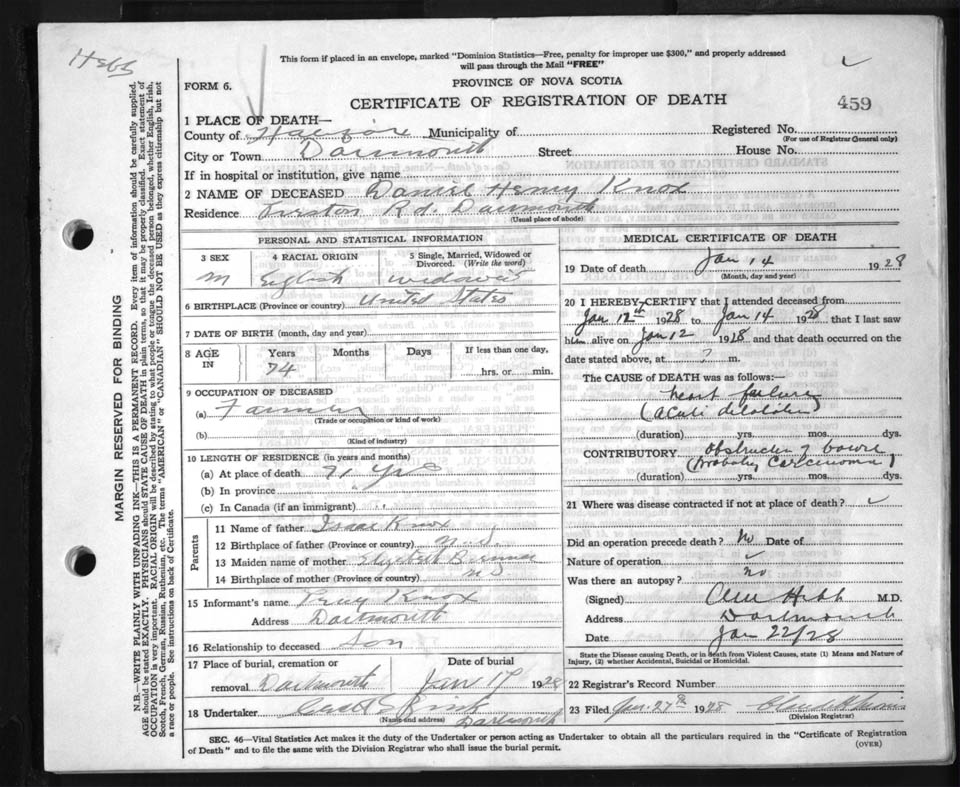 Hebb
This form if placed in an envelope, marked "Dominion Statistics—Free, penalty for improper use $300," and properly addressed
will pass through the Mail "FREE"
FORM 6.
PROVINCE OF NOVA SCOTIA
CERTIFICATE OF REGISTRATION OF DEATH
459
1 PLACE OF DEATH—
County of Halifax Municipality of Registered No.
(For use of Registrar General only)
City or Town Dartmouth Street House No.
If in hospital or institution, give name
2 NAME OF DECEASED Daniel Henry Knox
Residence Preston Rd. Dartmouth
(Usual place of abode)
PERSONAL AND STATISTICAL INFORMATION
3 SEX 4 RACIAL ORIGIN 5 Single, Married, Widowed or
Divorced. (Write the word)
M English Widower
6 BIRTHPLACE (Province or country) United States
7 DATE OF BIRTH (month, day and year)
8 AGE IN Years Months Days If less than one day,
74 hrs. or min.
9 OCCUPATION OF DECEASED
(a) Farmer
(Trade or occupation or kind of work)
(b)
(Kind of industry)
10 LENGTH OF RESIDENCE (in years and months)
(a) At place of death 71 yrs
(b) In province
(c) In Canada (if an immigrant)
Parents
11 Name of father Isaac Knox
12 Birthplace of father (Province or country) N.S
13 Maiden name of mother Elizabeth
14 Birthplace of mother (Province or country) NS
15 Informant's name Knox
Address Dartmouth
16 Relationship to deceased Son
17 Place of burial, cremation or Date of burial
removal Dartmouth Jan 17 1928
18 Undertaker
(Name and address) Dartmouth
MEDICAL CERTIFICATE OF DEATH
19 Date of death Jan 14 1928
(Month, day and year)
20 I HEREBY CERTIFY that I attended deceased from
Jan 12th 1928 to Jan 14 1928 that I last saw
him alive on Jan 12 1928 and that death occurred on the
date stated above, at ? m.
The CAUSE OF DEATH was as follows:—
heart failure
(acute dilatation)
(duration) yrs. mos. dys.
CONTRIBUTORY obstruction of bowel
(probably carcinoma)
(duration) yrs. mos. dys.
21 Where was disease contracted if not at place of death?
Did an operation precede death? No Date of
Nature of operation
Was there an autopsy? no
(Signed) Hebb M.D.
Address Dartmouth
Date Jan 22/28
State the Disease causing Death, or in death from Violent Causes, state (1) Means and Nature of
Injury, (2) whether Accidental, Suicidal or Homicidal.
22 Registrar's Record Number
23 Filed Jan. 27th 1928
(Division Registrar)
SEC. 46—Vital Statistics Act makes it the duty of the Undertaker or person acting as Undertaker to obtain all the particulars required in the "Certificate of Registration
of Death" and to file the same with the Division Registrar who shall issue the burial permit.
(OVER)
MARGIN RESERVED FOR BINDING
N.B.—WRITE PLAINLY WITH UNFADING INK—THIS IS A PERMANENT RECORD. Every item of information should be carefully supplied.
AGE should be stated EXACTLY. PHYSICIANS should STATE CAUSE OF DEATH in plain terms, so that it may be properly classified. Exact statement of
OCCUPATION is very important. RACIAL ORIGIN will be described by stating to what people or tongue the deceased person belonged, whether English, Irish,
Scotch, French, German, Russian, Ruthenian, etc. The terms "AMERICAN" or "CANADIAN" SHOULD NOT BE USED as they express citizenship but not
a race or people. See instructions on back of Certificate.